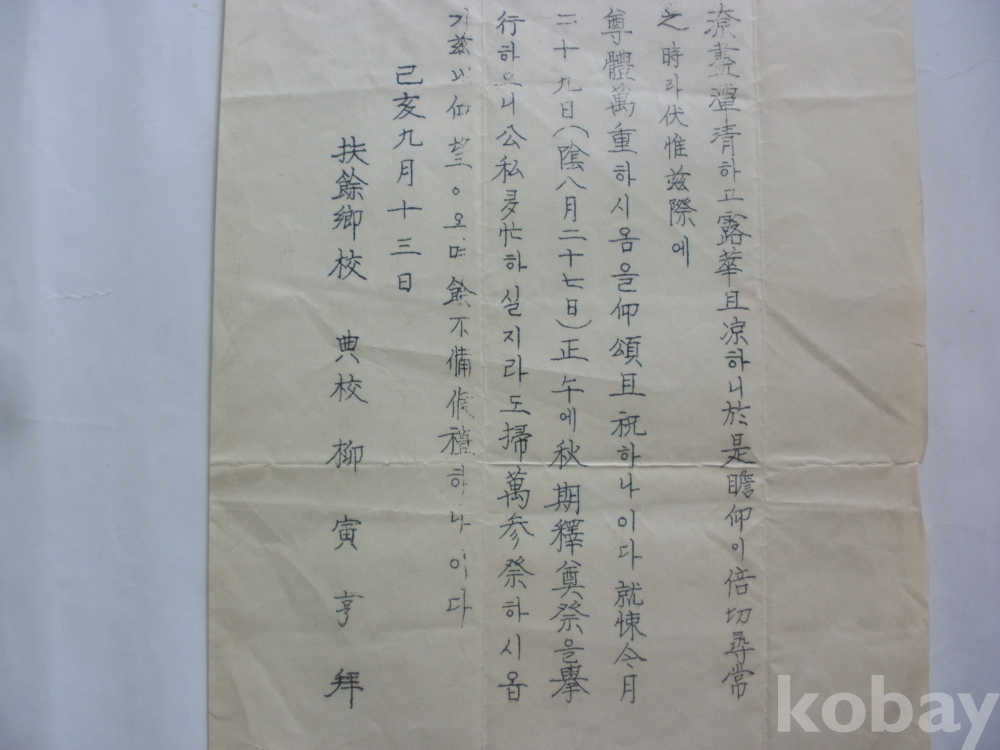 潦盡潭清하고露華且凉하니於是瞻仰이倍切尋常
之時라伏惟玆際에
尊體萬重하시옴을仰頌且祝하나이다就悚今月
二十九日(陰八月二十七日)正午에秋期釋奠祭을擧
行하오니公私多忙하실지라도掃萬參祭하시옵
기玆以仰望이오며餘不備候禮하나이다
己亥九月十三日
扶餘鄕校 典校 柳寅亨 拜
kobay